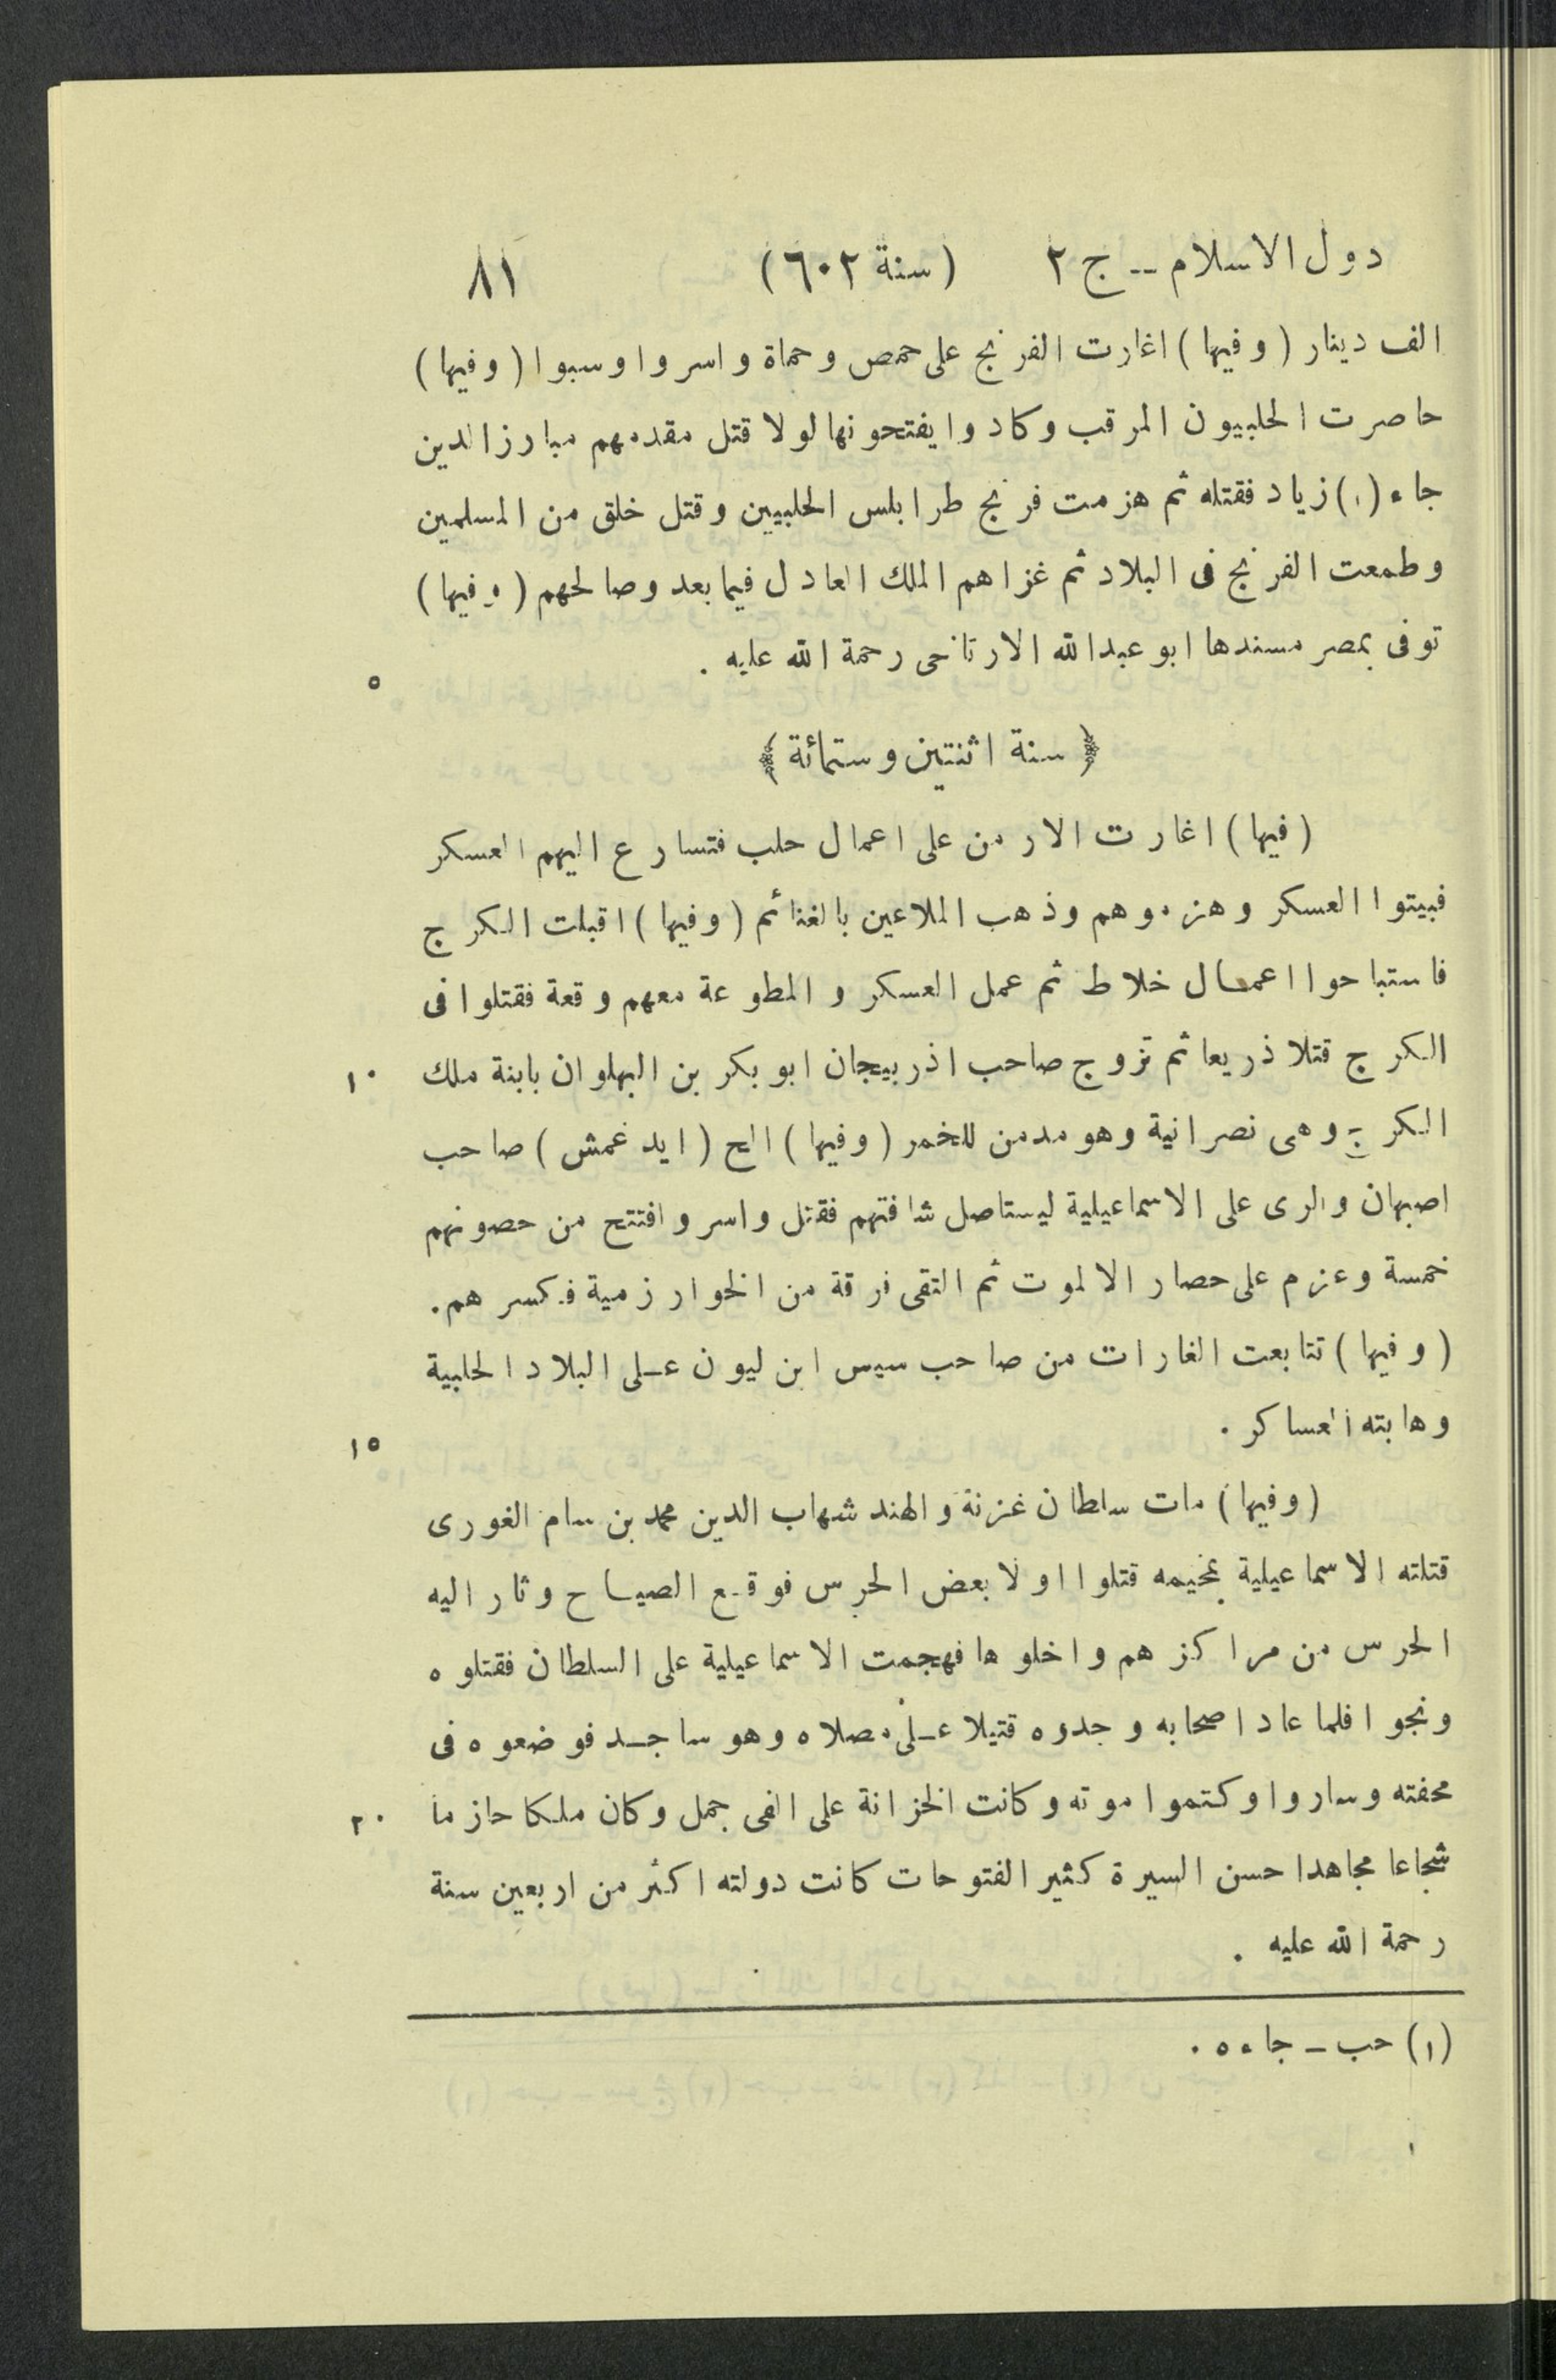 دول الاسلام -- ج ٢ (سنة ٦٠٢) ٨١
الف دينار (وفيها) اغارت الفرنج على حمص وحماة واسروا وسبوا (وفيها)
حاصرت الحلبيون المرقب وكادوا يفتحونها لولا قتل مقدمهم مبارزالدين
جاء (١) زياد فقتله ثم هزمت فرنج طرابلس الحلبيين وقتل خلق من المسلمين
وطمعت الفرنج فى البلاد ثم غزاهم الملك العادل فيما بعد وصالحهم (وفيها)
توفى بمصر مسندها ابو عبدالله الارتاحى رحمة الله عليه . ٥
﴿ سنة اثنتين وستمائة ﴾
(فيها) اغارت الارمن على اعمال حلب فتسارع اليهم العسكر
فبيتوا العسكر وهزموهم وذهب الملاعين بالغنائم (وفيها) اقبلت الكرج
فاستباحوا اعمال خلاط ثم عمل العسكر والمطوعة معهم وقعة فقتلوا فى
الكرج قتلا ذريعا ثم تزوج صاحب اذربيجان ابوبكر بن البهلوان بابنة ملك ١٠
الكرج وهى نصرانية وهو مدمن للخمر (وفيها) الح (ايدغمش) صاحب
اصبهان والرى على الاسماعيلية ليستاصل شافتهم فقتل واسر وافتتح من حصونهم
خمسة وعزم على حصار الالموت ثم التقى فرقة من الخوارزمية فكسرهم .
(وفيها) تتابعت الغارات من صاحب سيس ابن ليون على البلاد الحلبية
وهابته العساكر . ١٥
(وفيها) مات سلطان غزنة والهند شهاب الدين محمد بن سام الغورى
قتلته الاسماعيلية بمخيمه قتلوا اولا بعض الحرس فوقع الصياح وثار اليه
الحرس من مراكزهم واخلوها فهجمت الاسماعيلية على السلطان فقتلوه
ونجوا فلما عاد اصحابه وجدوه قتيلا على مصلاه وهو ساجد فوضعوه فى
محفته وساروا وكتموا موته وكانت الخزانة على الفى جمل وكان ملكا حازما ٢٠
شجاعا مجاهدا حسن السيرة كثير الفتوحات كانت دولته اكثر من اربعين سنة
رحمة الله عليه .
(١) حب - جاءه .